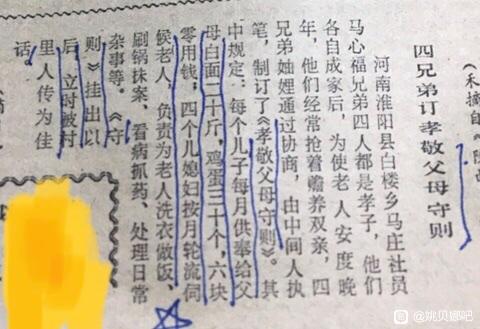 （禾摘自《
四兄弟订孝敬父母守则
河南淮阳县白楼乡马庄社员
马心福兄弟四人都是孝子，他们
各自成家后，为使老人安度晚
年，他们经常抢着赡养双亲，四
兄弟妯娌通过协商，由中间人执
笔，制订了《孝敬父母守则》。其
中规定：每个儿子每月供奉给父
母白面二十斤，鸡蛋三十个，六块
零用钱；四个儿媳妇按月轮流伺
候老人，负责为老人洗衣做饭、
刷锅抹案、看病抓药、处理日常
杂事等。《守
则》挂出以
后，立时被村
里人传为佳
话。
@姚贝娜吧